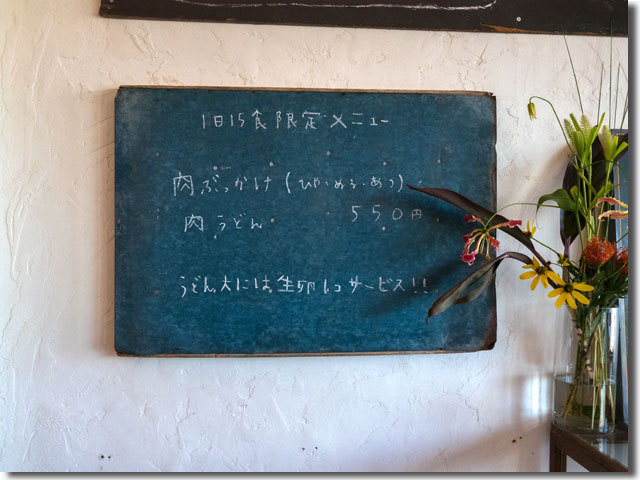 1日15食限定メニュー
肉ぶっかけ(ひや・ぬる・あつ)
肉うどん 550円
うどん大には生卵1コサービス!!